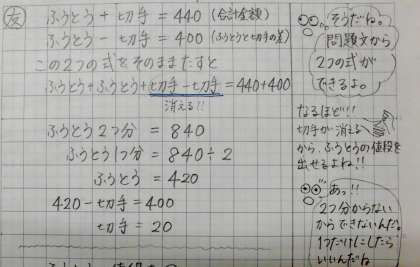 友
ふうとう + 切手 = 440 (合計金額)
ふうとう - 切手 = 400 (ふうとうと切手の差)
この2つの式をそのままたすと
ふうとう+ふうとう+切手-切手=440+400
消える!!
ふうとう2つ分 = 840
ふうとう1つ分 = 840÷2
ふうとう = 420
420-切手=400
切手 = 20
そうだね。
問題文から
2つの式が
できるよ。
なるほど!!
切手が消える
から、ふうとうの値段を
出せるよね!!
あっ!!
2つ分からない
からできないんだ。
1つだけにしたら
いいんだね